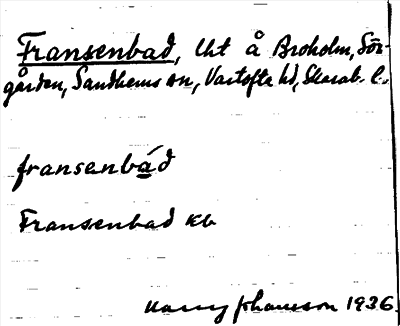 Fransenbad, lht å Broholm, Sör-
gården, Sandhems sn, Vartofta hd, Skarab. l.
fransenbád
Fransenbad kb
Harry Johansson 1936